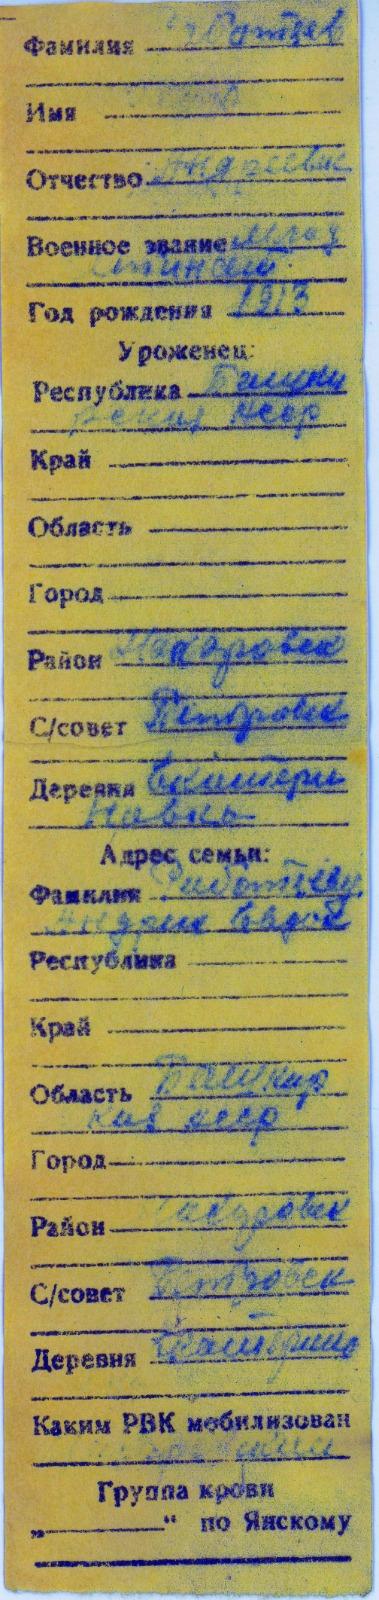 Фамилия
Имя
Отчество Андреевич
Военное звание Млад
Год рождения 1913
Уроженец:
Республика Башки
рская Асср
Край
Область
Город
Район Макаровск
С/совет Петровск
Деревня Екатери
новка
Адрес семьи:
Фамилия Работневу
Андрею Евдок
Республика
Край
Область Башкир
кая асср
Город
Район Макаровск
С/совет Петровск
Деревня
Каким РВК мобилизован
Группа крови
„ “ по Янскому